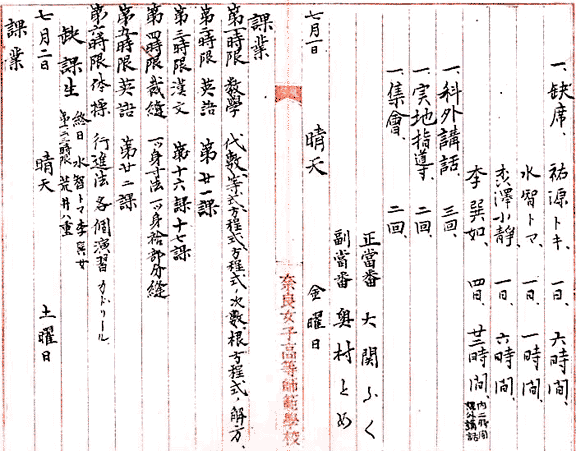 一、缺席、祐源トキ、一日、六時間、
水智トマ、一日、一時間、
小靜、一日、六時間、
李巽如、四日、廿三時間、内二時間 課外講話
一、科外講話、三回、
一、実地指導、二回、
一、集會、二回、
正當番 大関ふく
副當番 奥村とめ
七月一日 晴天 金曜日
奈良女子高等師範學校
課業
第一時限 数學 代數、等式、方程式、方程式ノ次數、根、方程式ノ解方、
第二時限 英語 第廿一課
第三時限 漢文 第十六課十七課
第四時限 裁縫 一ツ身寸法一ツ身袷部分縫
第五時限 英語 第廿二課
第六時限 体操 行進法各個演習カドリール
缺課生 終日 水智トマ 李巽如
第一二三時限 荒井八重
七月二日 晴天 土曜日
課業